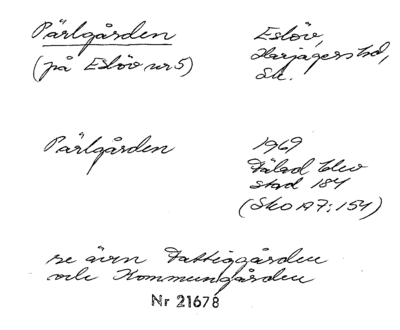 Pärlgården
(på Eslöv nr 5)
Eslöv,
Harjagers hd,
Sk.
Pärlgården
1969
Fälad blev
stad 184
(SkO A7:154)
se även Fattiggården
och Kommungården
Nr 21678